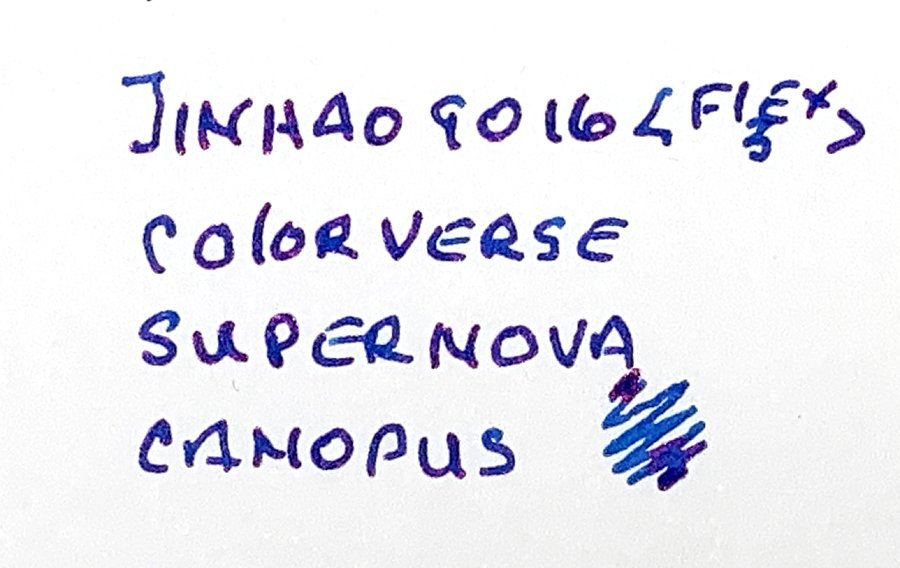 JINHAO 9016 <FLEX>
COLORVERSE
SUPERNOVA
CANOPUS